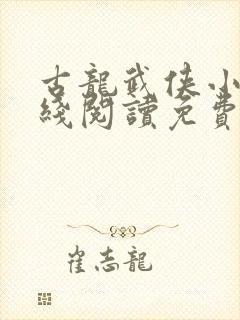 古龍武俠小
綫閱讀免費
崔志龍